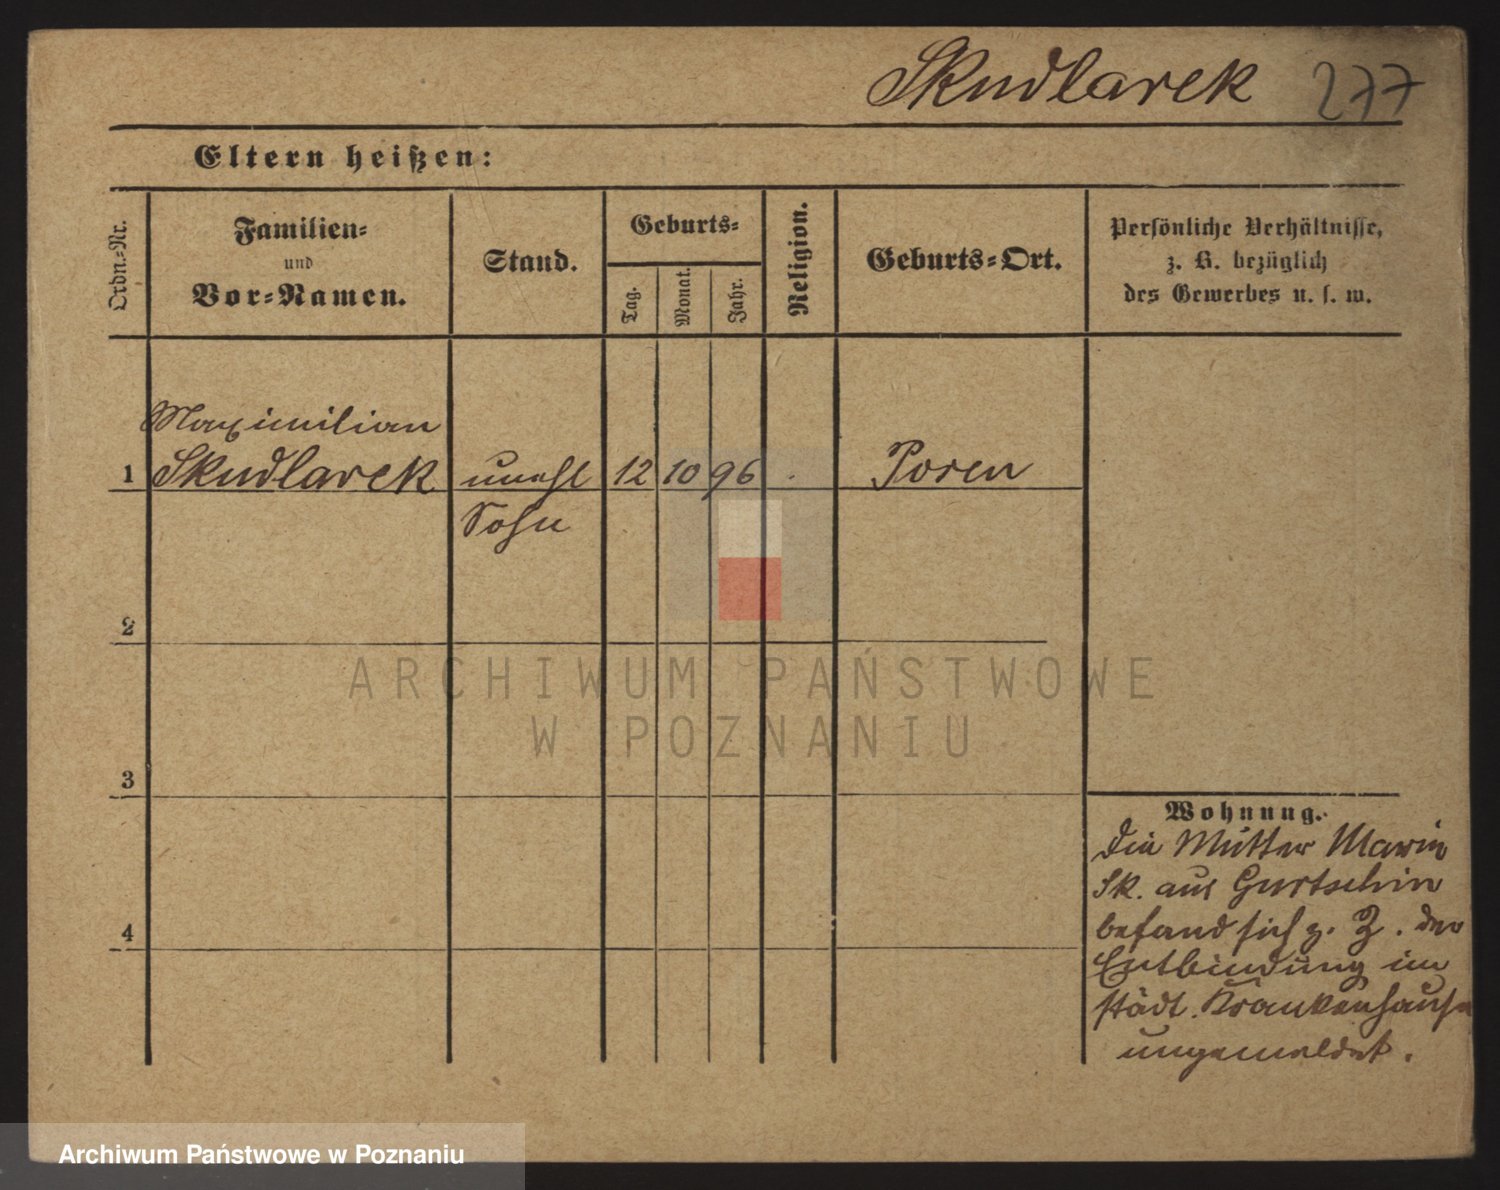 Skudlarek 277
Eltern heißen:
Ordn.-Nr.
Familien-
und
Vor-Namen.
Stand.
Geburts-
Tag.
Monat.
Jahr.
Religion.
Geburts-Ort.
Persönliche Verhältnisse,
z. B. bezüglich
des Gewerbes u. s. w.
Maximilian
1 Skudlarek unehl 12 10 96 . Posen
Sohn
2
3
4
Wohnung.
Die Mutter Marie
Sk. aus Gurtschin
befand sich z. Z. der
Entbindung im
städt. Krankenhause
ungemeldet.
ARCHIWUM PAŃSTWOWE
W POZNANIU
Archiwum Państwowe w Poznaniu